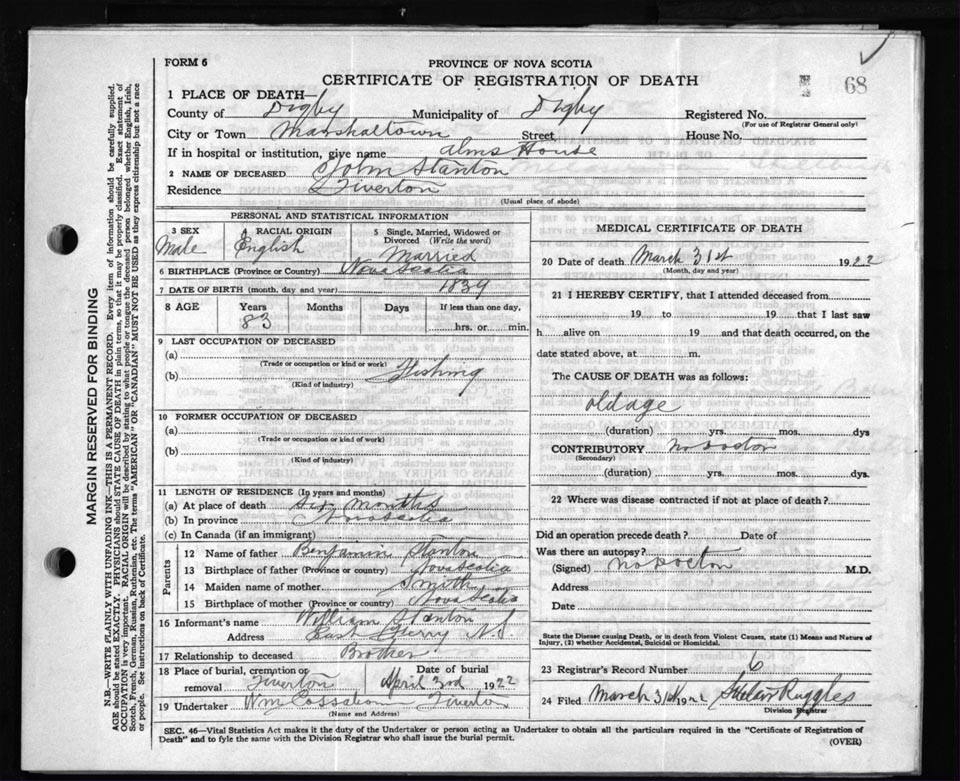 FORM 6
PROVINCE OF NOVA SCOTIA
CERTIFICATE OF REGISTRATION OF DEATH
68
1 PLACE OF DEATH—
County of Digby Municipality of Digby Registered No.
(For use of Registrar General only)
City or Town Marshaltown Street House No.
If in hospital or institution, give name Alms House
2 NAME OF DECEASED John Stanton
Residence Tiverton
(Usual place of abode)
PERSONAL AND STATISTICAL INFORMATION
3 SEX Male
4 RACIAL ORIGIN English
5 Single, Married, Widowed or Divorced (Write the word) Married
6 BIRTHPLACE (Province or Country) Nova Scotia
7 DATE OF BIRTH (month, day and year) 1839
8 AGE Years 83 Months Days If less than one day, hrs. or min.
9 LAST OCCUPATION OF DECEASED
(a)
(Trade or occupation or kind or work)
(b) Fishing
(Kind of industry)
10 FORMER OCCUPATION OF DECEASED
(a)
(Trade or occupation or kind of work)
(b)
(Kind of industry)
11 LENGTH OF RESIDENCE (In years and months)
(a) At place of death six months
(b) In province Nova Scotia
(c) In Canada (if an immigrant)
Parents
12 Name of father Benjamin Stanton
13 Birthplace of father (Province or country) Nova Scotia
14 Maiden name of mother Smith
15 Birthplace of mother (Province or country) Nova Scotia
16 Informant's name William Stanton
Address East Ferry N.S
17 Relationship to deceased Brother
18 Place of burial, cremation or removal Tiverton Date of burial April 3rd 1922
19 Undertaker Wm Tiverton
(Name and Address)
MEDICAL CERTIFICATE OF DEATH
20 Date of death March 31st 1922
(Month, day and year)
21 I HEREBY CERTIFY, that I attended deceased from
19 to 19 that I last saw
h alive on 19 and that death occurred, on the
date stated above, at m.
The CAUSE OF DEATH was as follows:
old age
(duration) yrs. mos. dys
CONTRIBUTORY no Doctor
(Secondary)
(duration) yrs. mos. dys.
22 Where was disease contracted if not at place of death?
Did an operation precede death? Date of
Was there an autopsy?
(Signed) no Doctor M.D.
Address
Date
State the Disease causing Death, or in death from Violent Causes, state (1) Means and Nature of
Injury, (2) whether Accidental, Suicidal or Homicidal.
23 Registrar's Record Number 6
24 Filed March 31st 1922 Ruggles
Division Registrar
SEC. 46—Vital Statistics Act makes it the duty of the Undertaker or person acting as Undertaker to obtain all the particulars required in the "Certificate of Registration of
Death" and to fyle the same with the Division Registrar who shall issue the burial permit.
(OVER)
MARGIN RESERVED FOR BINDING
N.B.—WRITE PLAINLY WITH UNFADING INK—THIS IS A PERMANENT RECORD. Every item of information should be carefully supplied.
AGE should be stated EXACTLY. PHYSICIANS should STATE CAUSE OF DEATH in plain terms, so that it may be properly classified. Exact statement of
OCCUPATION is very important. RACIAL ORIGIN will be described by stating to what people or tongue the deceased person belonged whether English, Irish,
Scotch, French, German, Russian, Ruthenian, etc. The terms "AMERICAN" OR "CANADIAN" MUST NOT BE USED as they express citizenship but not a race
or people. See instructions on back of Certificate.